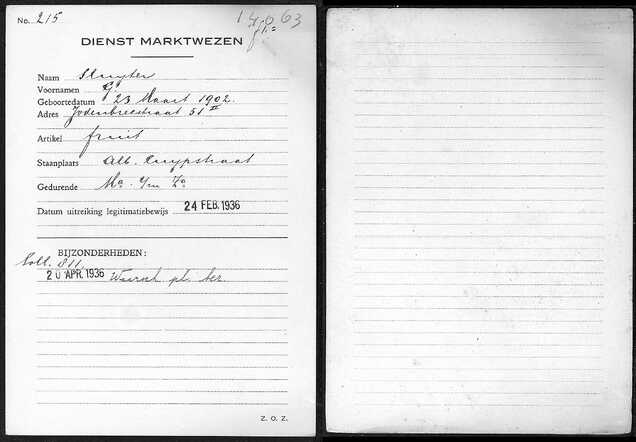 No. 215
DIENST MARKTWEZEN
Naam Sluyter
Voornamen G.
Geboortedatum 23 Maart 1902.
Adres Jodenbreestraat 51 II
Artikel fruit
Staanplaats Alb. Cuypstraat
Gedurende Ma. t/m Za
Datum uitreiking legitimatiebewijs 24 FEB. 1936
BIJZONDERHEDEN:
Soll. 811.
20 APR. 1936 pl.
Z. O. Z.